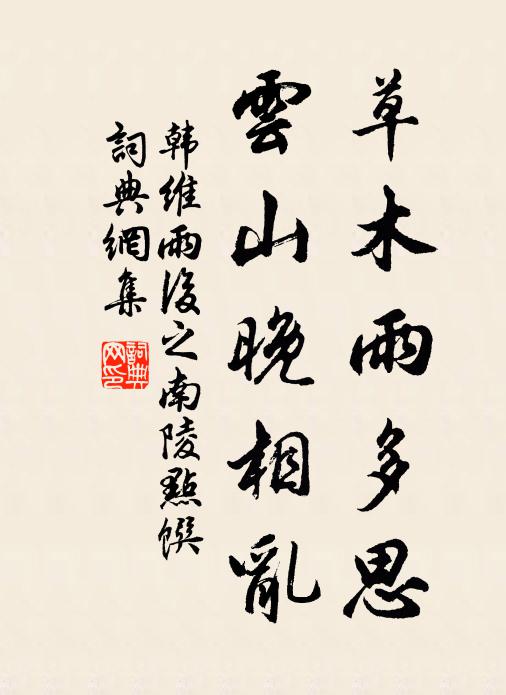 草木雨多思
雲山晚相亂
韩維雨後之南陵點饌
詞典網集
詞典網印